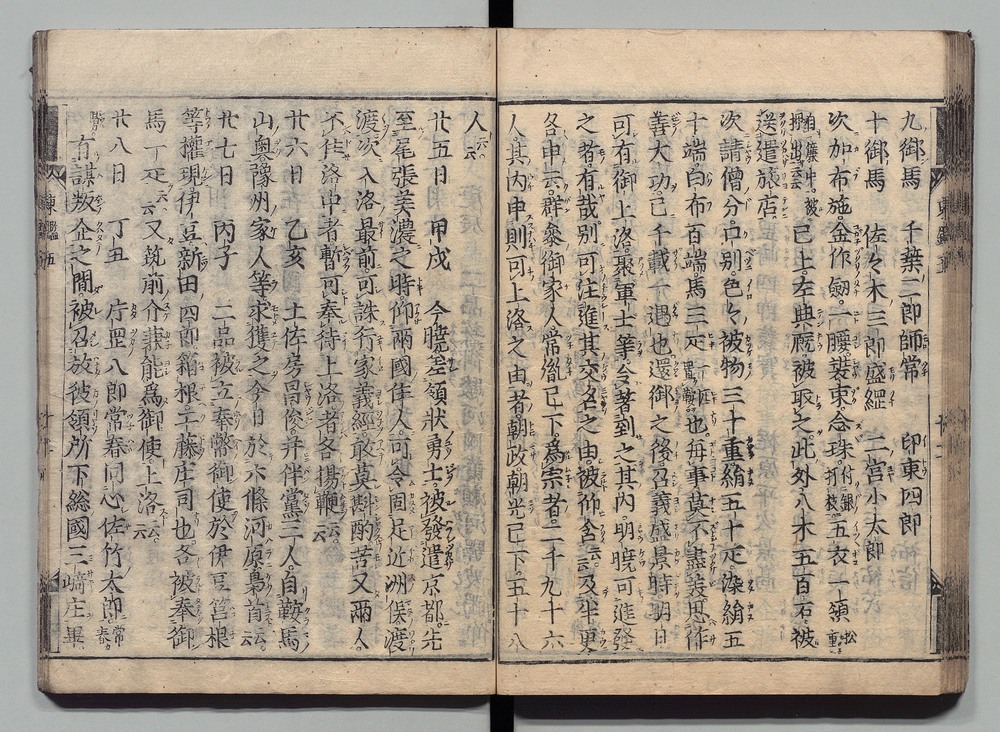 九御馬 千葉二郎師常 印東四郎
十御馬 佐々木三郎盛綱 二宮小太郎
次加布施。金作劔一腰装束。念珠付銀打枝五衣一領松重
自簾中。被押出云云已上。左典厩被取之。此外八木五百石被
送遣旅店
次請僧分口別。色々被物三十重。絹五十疋。染絹五
十端。白布百端。馬三疋也。毎事莫不盡美。思作
善大功已千載一遇也。還御之後。召義盛景時。明日
可有御上洛。聚軍士等。令著到之。其内明曉可進發
之者有哉。別可注進其交名之由。被仰含云云。及半更
各申云。群参御家人。常胤已下。為宗者。二千九十六
人。其内申則可上洛之由者。朝政。朝光已下。五十八
人云云
廿五日 甲戌 今曉差領状勇士。被發遣京都。先
至尾張美濃之時。仰兩國住人。可令固足近洲俣渡
渡。次入洛最前可誅行家義經。敢莫斟酌。若又兩人
不住洛中者。暫可奉待上洛者。各揚鞭云云
廿六日 乙亥 土佐房昌俊。并伴黨三人。自鞍馬
山奥。豫州家人等求獲之。今日於六條河原梟首云云
廿七日 丙子 二品被立奉幣御使於伊豆筥根
等權現。伊豆新田四郎。箱根工藤庄司也。各被奉御
馬一疋云云。又筑前介兼能為御使上洛云云
廿八日 丁丑 片罡八郎常春。同心佐竹太郎常春舅
有謀叛企之間。被召放彼領所下総國三﨑庄畢
東鑑 五